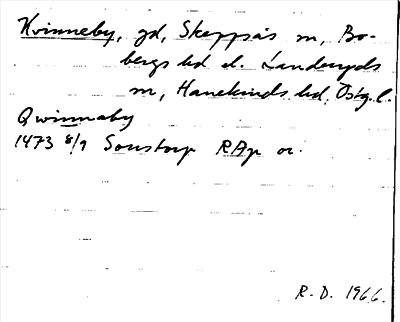 Kvinneby, gd, Skeppsås sn, Bo-
bergs hd el. Landeryds
sn, Hanekinds hd, Östg.l.
Qwinnaby
1473 8/9 Sonstorp RAp or.
R.D. 1966.